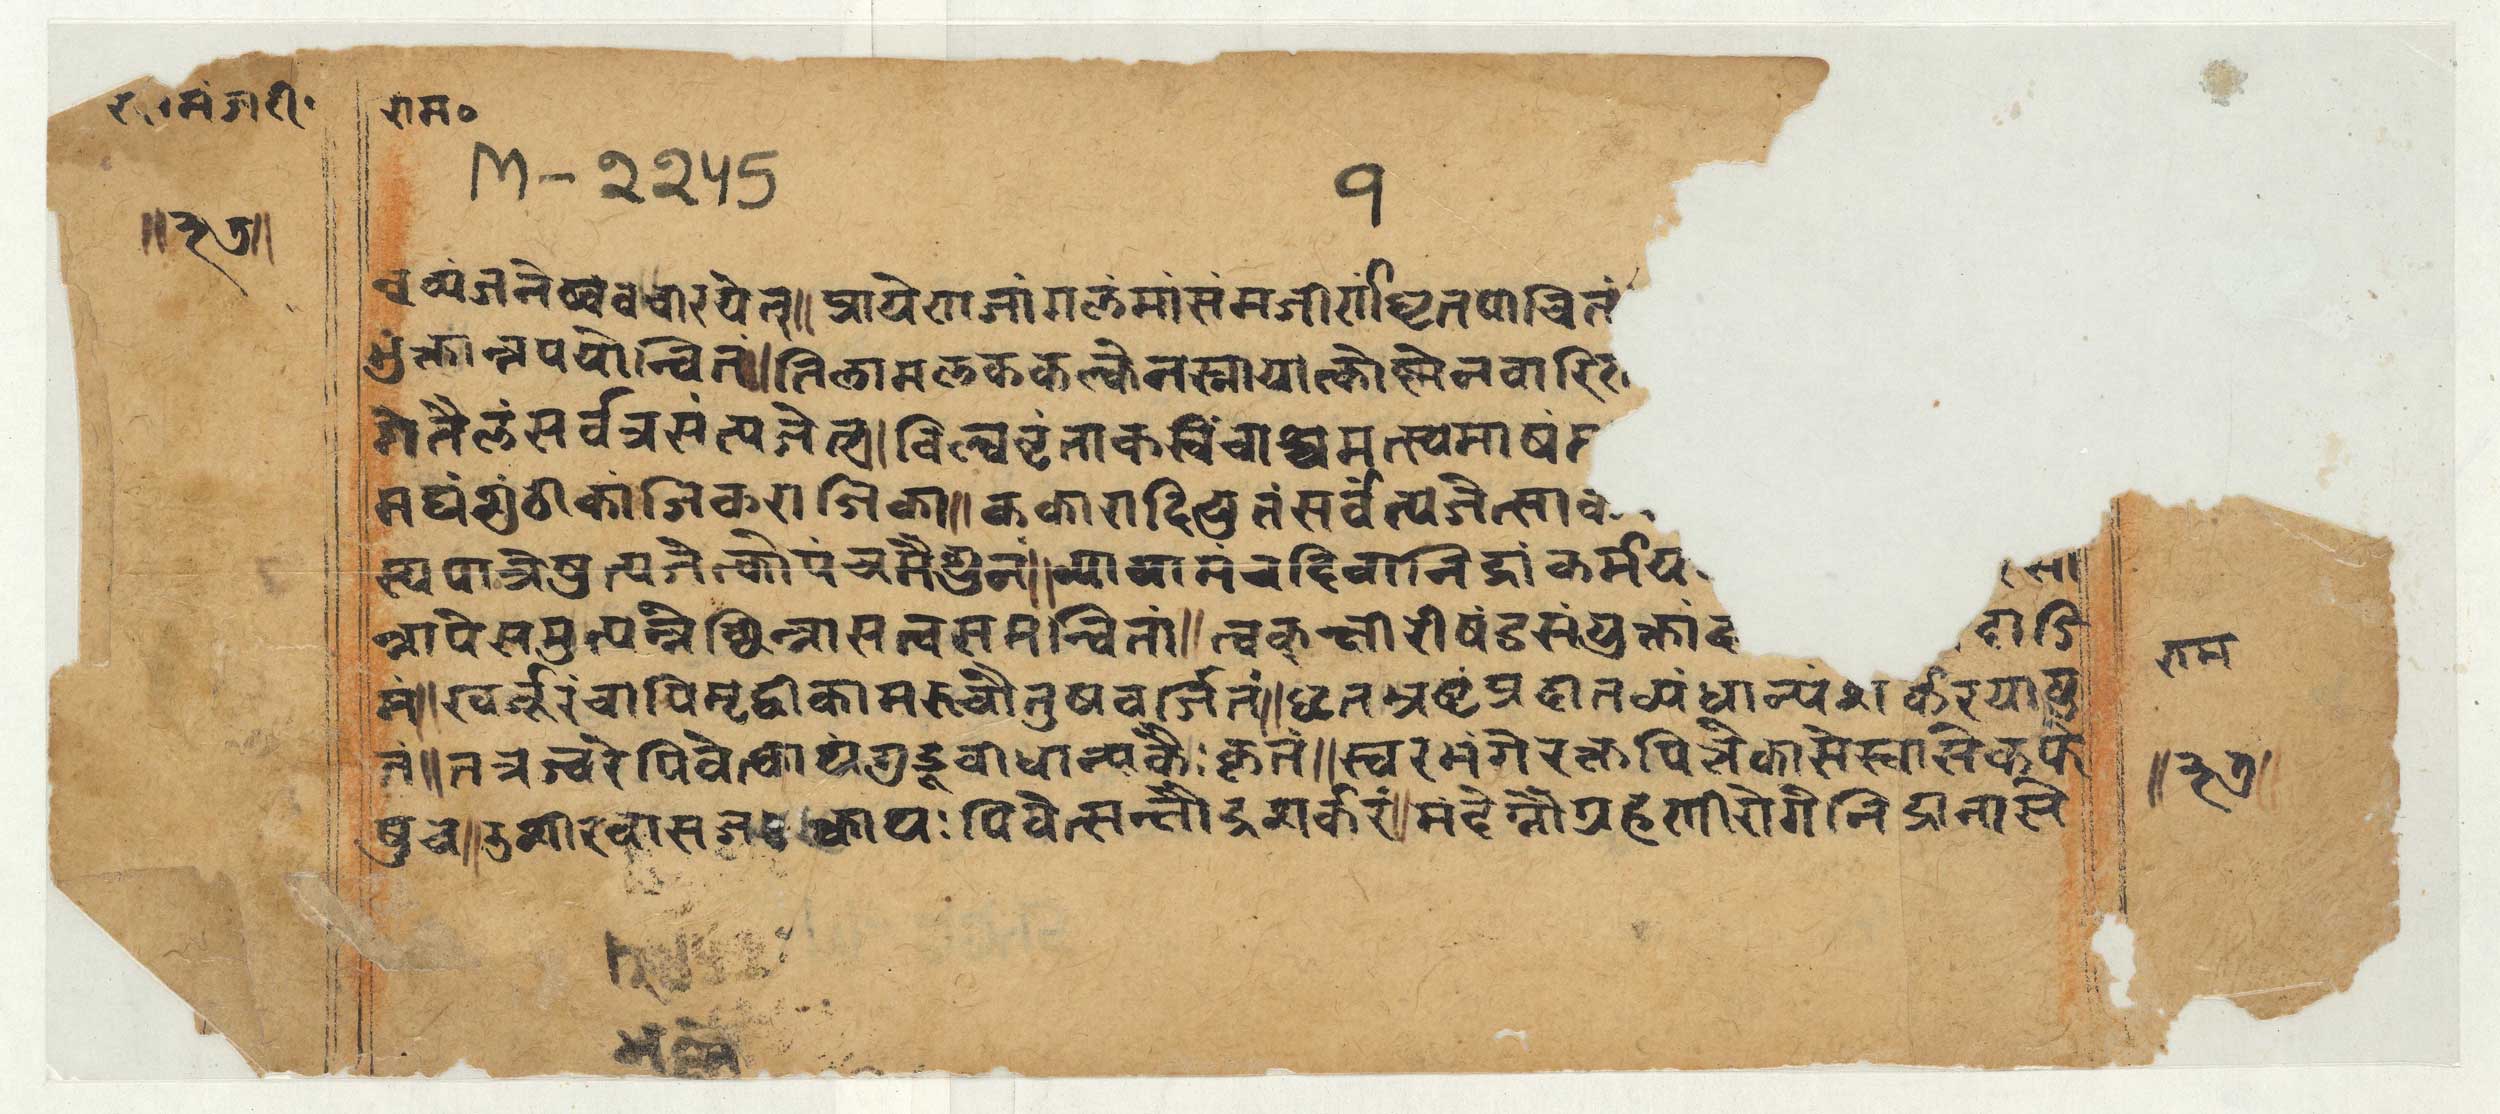 मंजरी॰
राम०
M-2245
१
व्यंजनेष्ववचारयेत्॥ प्रायेणजांगलंमांसंमजीर्णंघृतपाचितं
भुंक्तान्नपयोन्वितं॥ तिलामलककल्केनस्नायात्कोष्णेनवारि
गेतैलंसर्वत्रसंत्यजेत्॥ विल्ववृंताकचिंचाश्चमत्स्यमाषं
मद्यंशुंठीकांजिकराजिका॥ ककारादियुतंसर्वंत्यजेत्साव
स्यपात्रेषुत्यजेत्कोपंचमैथुनं॥ व्यायामंचदिवानिद्रांकर्मय
न्नापेसमुत्पन्नेछिन्नासत्वसमन्वितां॥ त्वक्क्षीरीषंडसंयुक्तां दाडि
मं॥ खर्जूरंचापिमृद्वीकामरुचौतुषवर्जितं॥ घृतभ्रष्टंप्रदातव्यंधान्यंशर्करयायु
तं॥ तत्रज्वरेपिवेत्क्वाथंगुडूचीधान्यकैःकृतं॥ स्वरभंगेरक्तपित्तेकासेस्वासेकफे
षुच॥ क्वाथः पिवेत्सक्षौद्रशर्करं॥ मंदेग्नौग्रहणीरोगेनिद्रानासे
राम